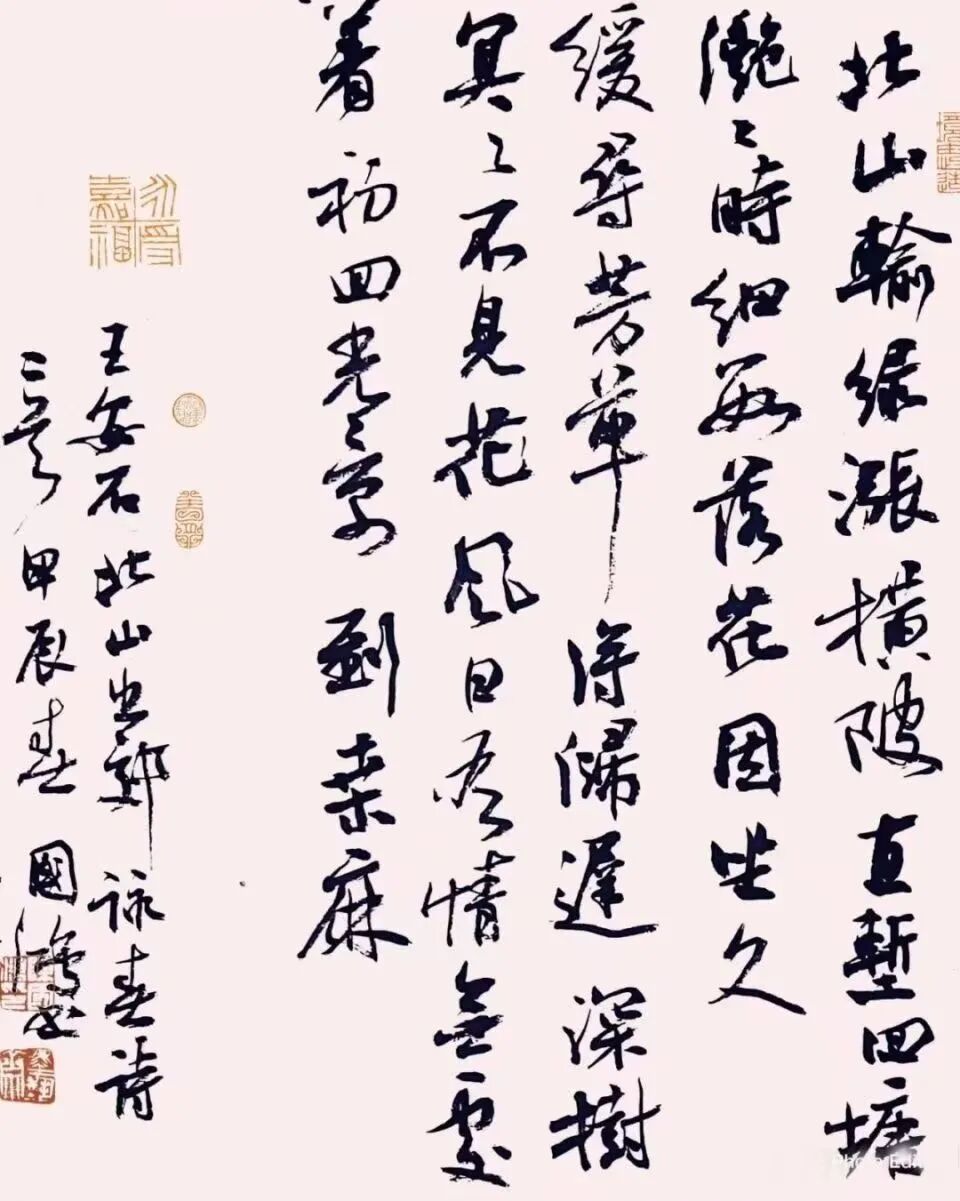 北山輸緑漲横陂直塹回塘
灔〻時细數落花因坐久
緩尋芳草得歸遲深樹
冥〻不見花風日有情無處
着初回光景到桑麻
王安石北山出郊詠春詩
二首甲辰春國鴻書
永受嘉福